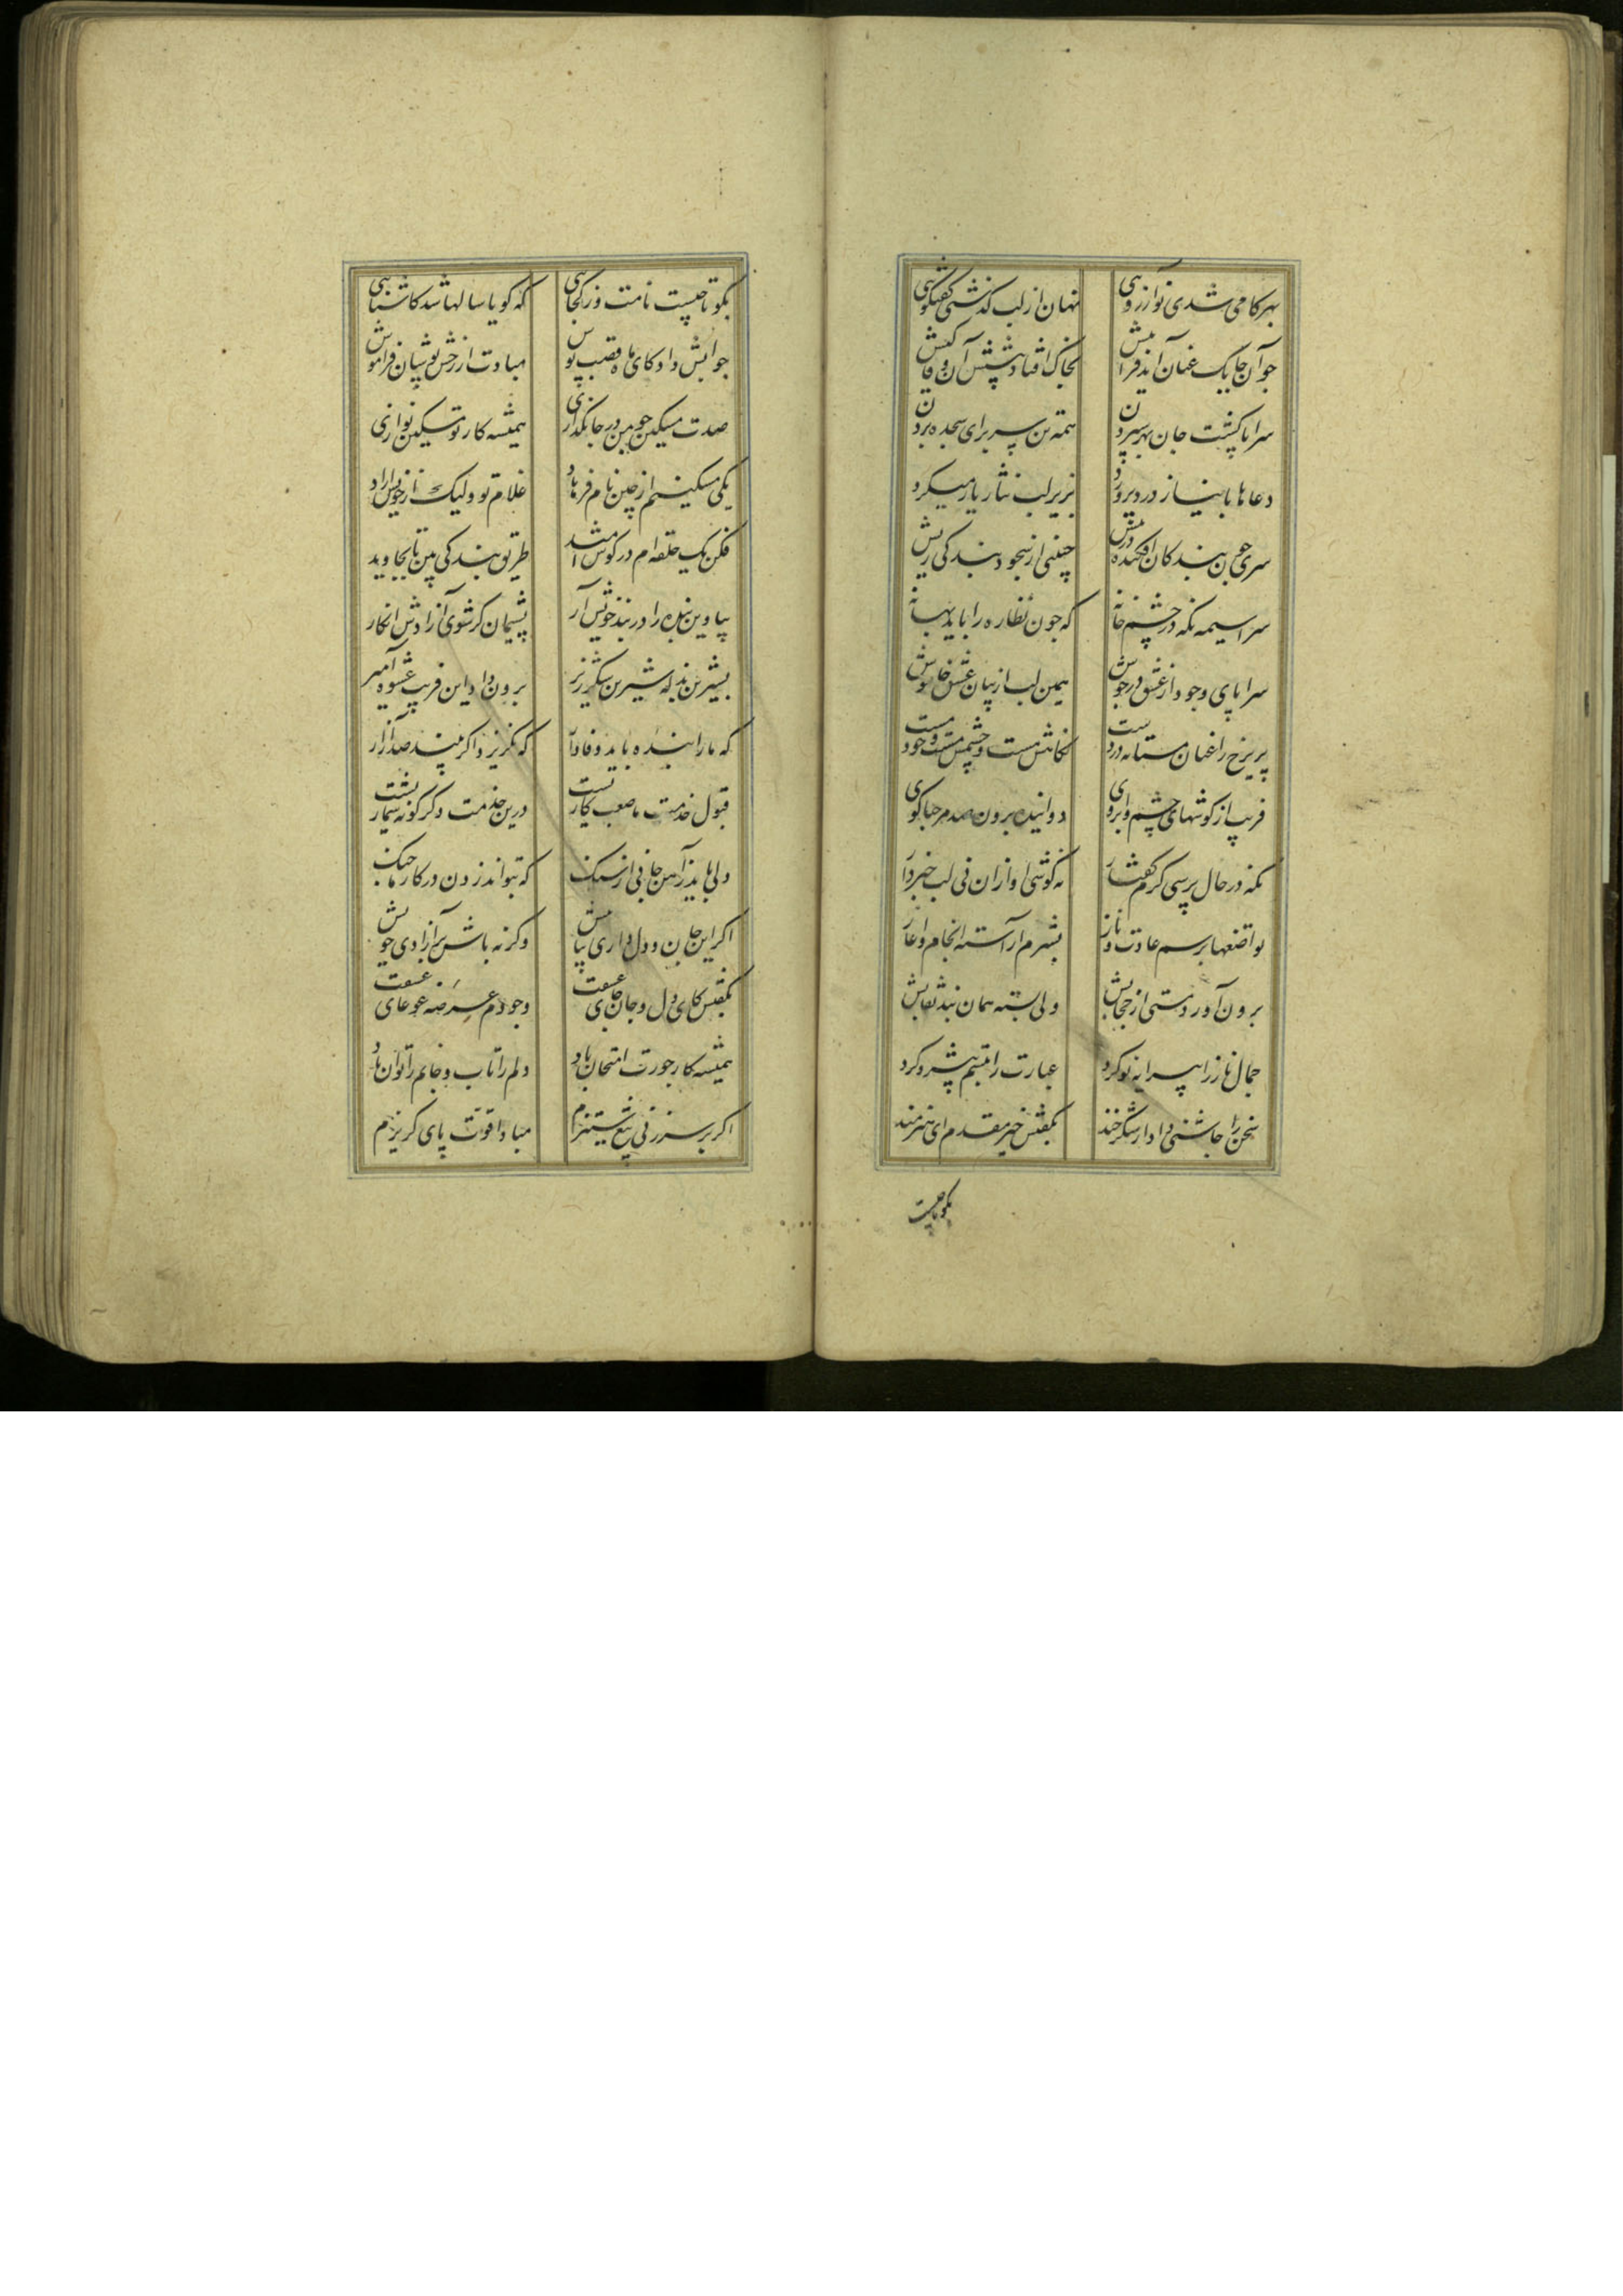 بهر کامی شدی نو آرزویی نهان از لب گذشتی گفتگویی
چو آن چابک عنان آمد فرا پیش بخاک افتاد پیشش آن وفا کیش
سراپا گشت جان بهر سپردن همه تن سر برای سجده بردن
دعاها با نیاز درد پرورد بزیر لب نثار یار میکرد
سری چون بندگان افکنده در پیش جبینی از سجود بندگی ریش
سراسیمه نگه در چشم خانه که چون نظاره را یابد بهانه
سراپای وجود از عشق در جوش همین لب از بیان عشق خاموش
پریرخ را عنان مستانه در دست نگاهش مست و چشمش مست و خود مست
فریب از گوشهای چشم و ابروی دوانیده برون صد مرحبا گوی
نگه در حال پرسی گرم گفتار نه گوش آواز آن نی لب خبردار
تواضعها برسم عادت و ناز بشرم آراسته انجام و آغاز
برون آورد مستی از حجابش ولی بسته همان بند نقابش
جمال ناز را پیرایه نو کرد عبارت را تبسم پیشرو کرد
سخن را چاشنی داد از شکرخند بگفتش خیر مقدم ای هنرمند
بگو تا چیست
بگو تا چیست نامت وز کجایی که گویا سالها شد کاشنایی
جوابش داد کای ماه قصب پوش مبادت از خشن پوشان فراموش
صدت مسکین چو من در جانگدازی همیشه کار تو مسکین نوازی
یکی مسکینم از چین نام فرهاد غلام تو ولیک از خویش آزاد
فکن یک حلقه‌ام در گوش امید طریق بندگی بین تا بجاوید
بیا وین بنده را در بند خویش آر پشیمان گر شوی آزادش انگار
بشیرین بذله شیرین شکر ریز برون داد این فریب عشوه آمیز
که ما را بنده باید وفادار که نگریزد اگر بیند صد آزار
قبول خدمت ما صعب کاریست درین خدمت دگر گونه شماریست
دلی باید ز آهن جانی از سنگ که بتواند زدن در کار ما چنگ
اگر این جان و دل داری بیا پیش وگرنه باش بر آزادی خویش
بگفتش کای دل و جان جای عشقت وجودم عرصه غوغای عشقت
همیشه کار جورت امتحان باد دلم را تاب و جانم را توان باد
اگر بر سر زنی تیغ ستیزم مبادا قوت پای گریزم